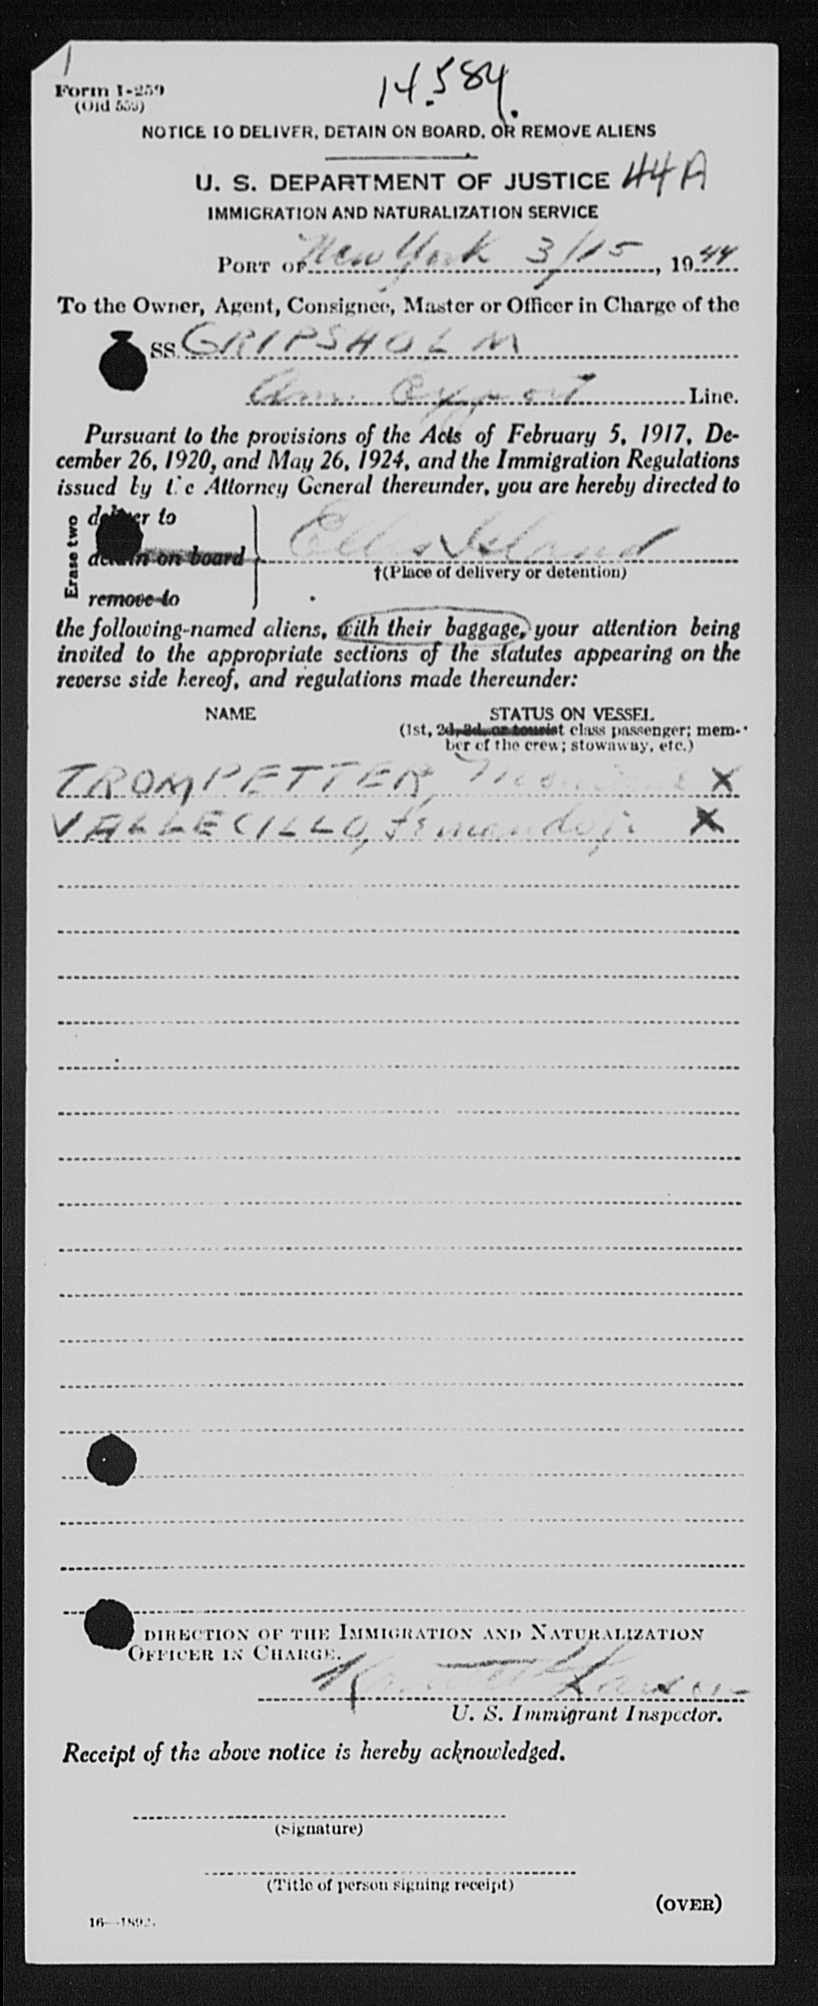 1
Form I-259
(Old 553)
14584
NOTICE TO DELIVER, DETAIN ON BOARD, OR REMOVE ALIENS
U. S. DEPARTMENT OF JUSTICE 44A
IMMIGRATION AND NATURALIZATION SERVICE
PORT OF New York 3/15, 1944
To the Owner, Agent, Consignee, Master or Officer in Charge of the
SS. GRIPSHOLM
Am. Export Line.
Pursuant to the provisions of the Acts of February 5, 1917, De-
cember 26, 1920, and May 26, 1924, and the Immigration Regulations
issued by the Attorney General thereunder, you are hereby directed to
Erase two
deliver to
detain on board
Ellis Island
†(Place of delivery or detention)
remove to
the following-named aliens, with their baggage, your attention being
invited to the appropriate sections of the statutes appearing on the
reverse side hereof, and regulations made thereunder:
NAME STATUS ON VESSEL
(1st, 2d, 3d, or tourist class passenger; mem-
ber of the crew; stowaway, etc.)
TROMPETTER, X
VALLECILLO, Fernando, X
DIRECTION OF THE IMMIGRATION AND NATURALIZATION
OFFICER IN CHARGE.
Larsen
U. S. Immigrant Inspector.
Receipt of the above notice is hereby acknowledged.
(Signature)
(Title of person signing receipt)
(OVER)